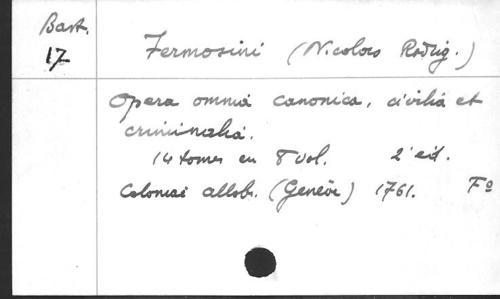 Bast.
17
Fermosini (Nicolas Rodrig.)
Opera omnia canonica, civilia et
criminalia.
14 tomes en 8 vol. 2e ed.
Coloniae allob. (Genève) 1741. Fo